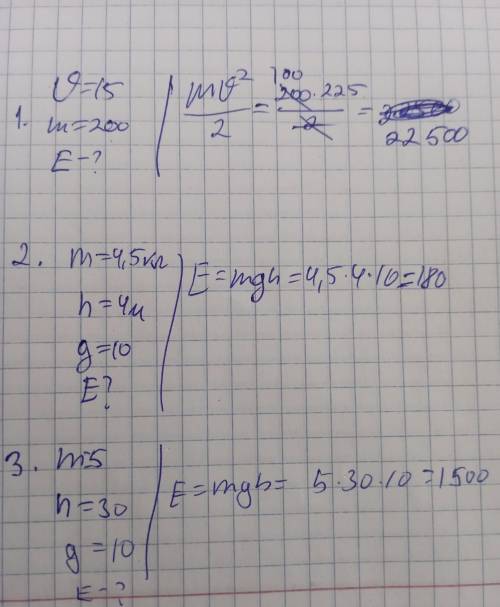 1. ϑ=15
m=200
E-?
mϑ²/2 = 200·225/2 = 22500
100
2. m=4,5кг
h=4м
g=10
E?
E=mgh=4,5·4·10=180
3. m=5
h=30
g=10
E-?
E=mgh= 5·30·10=1500